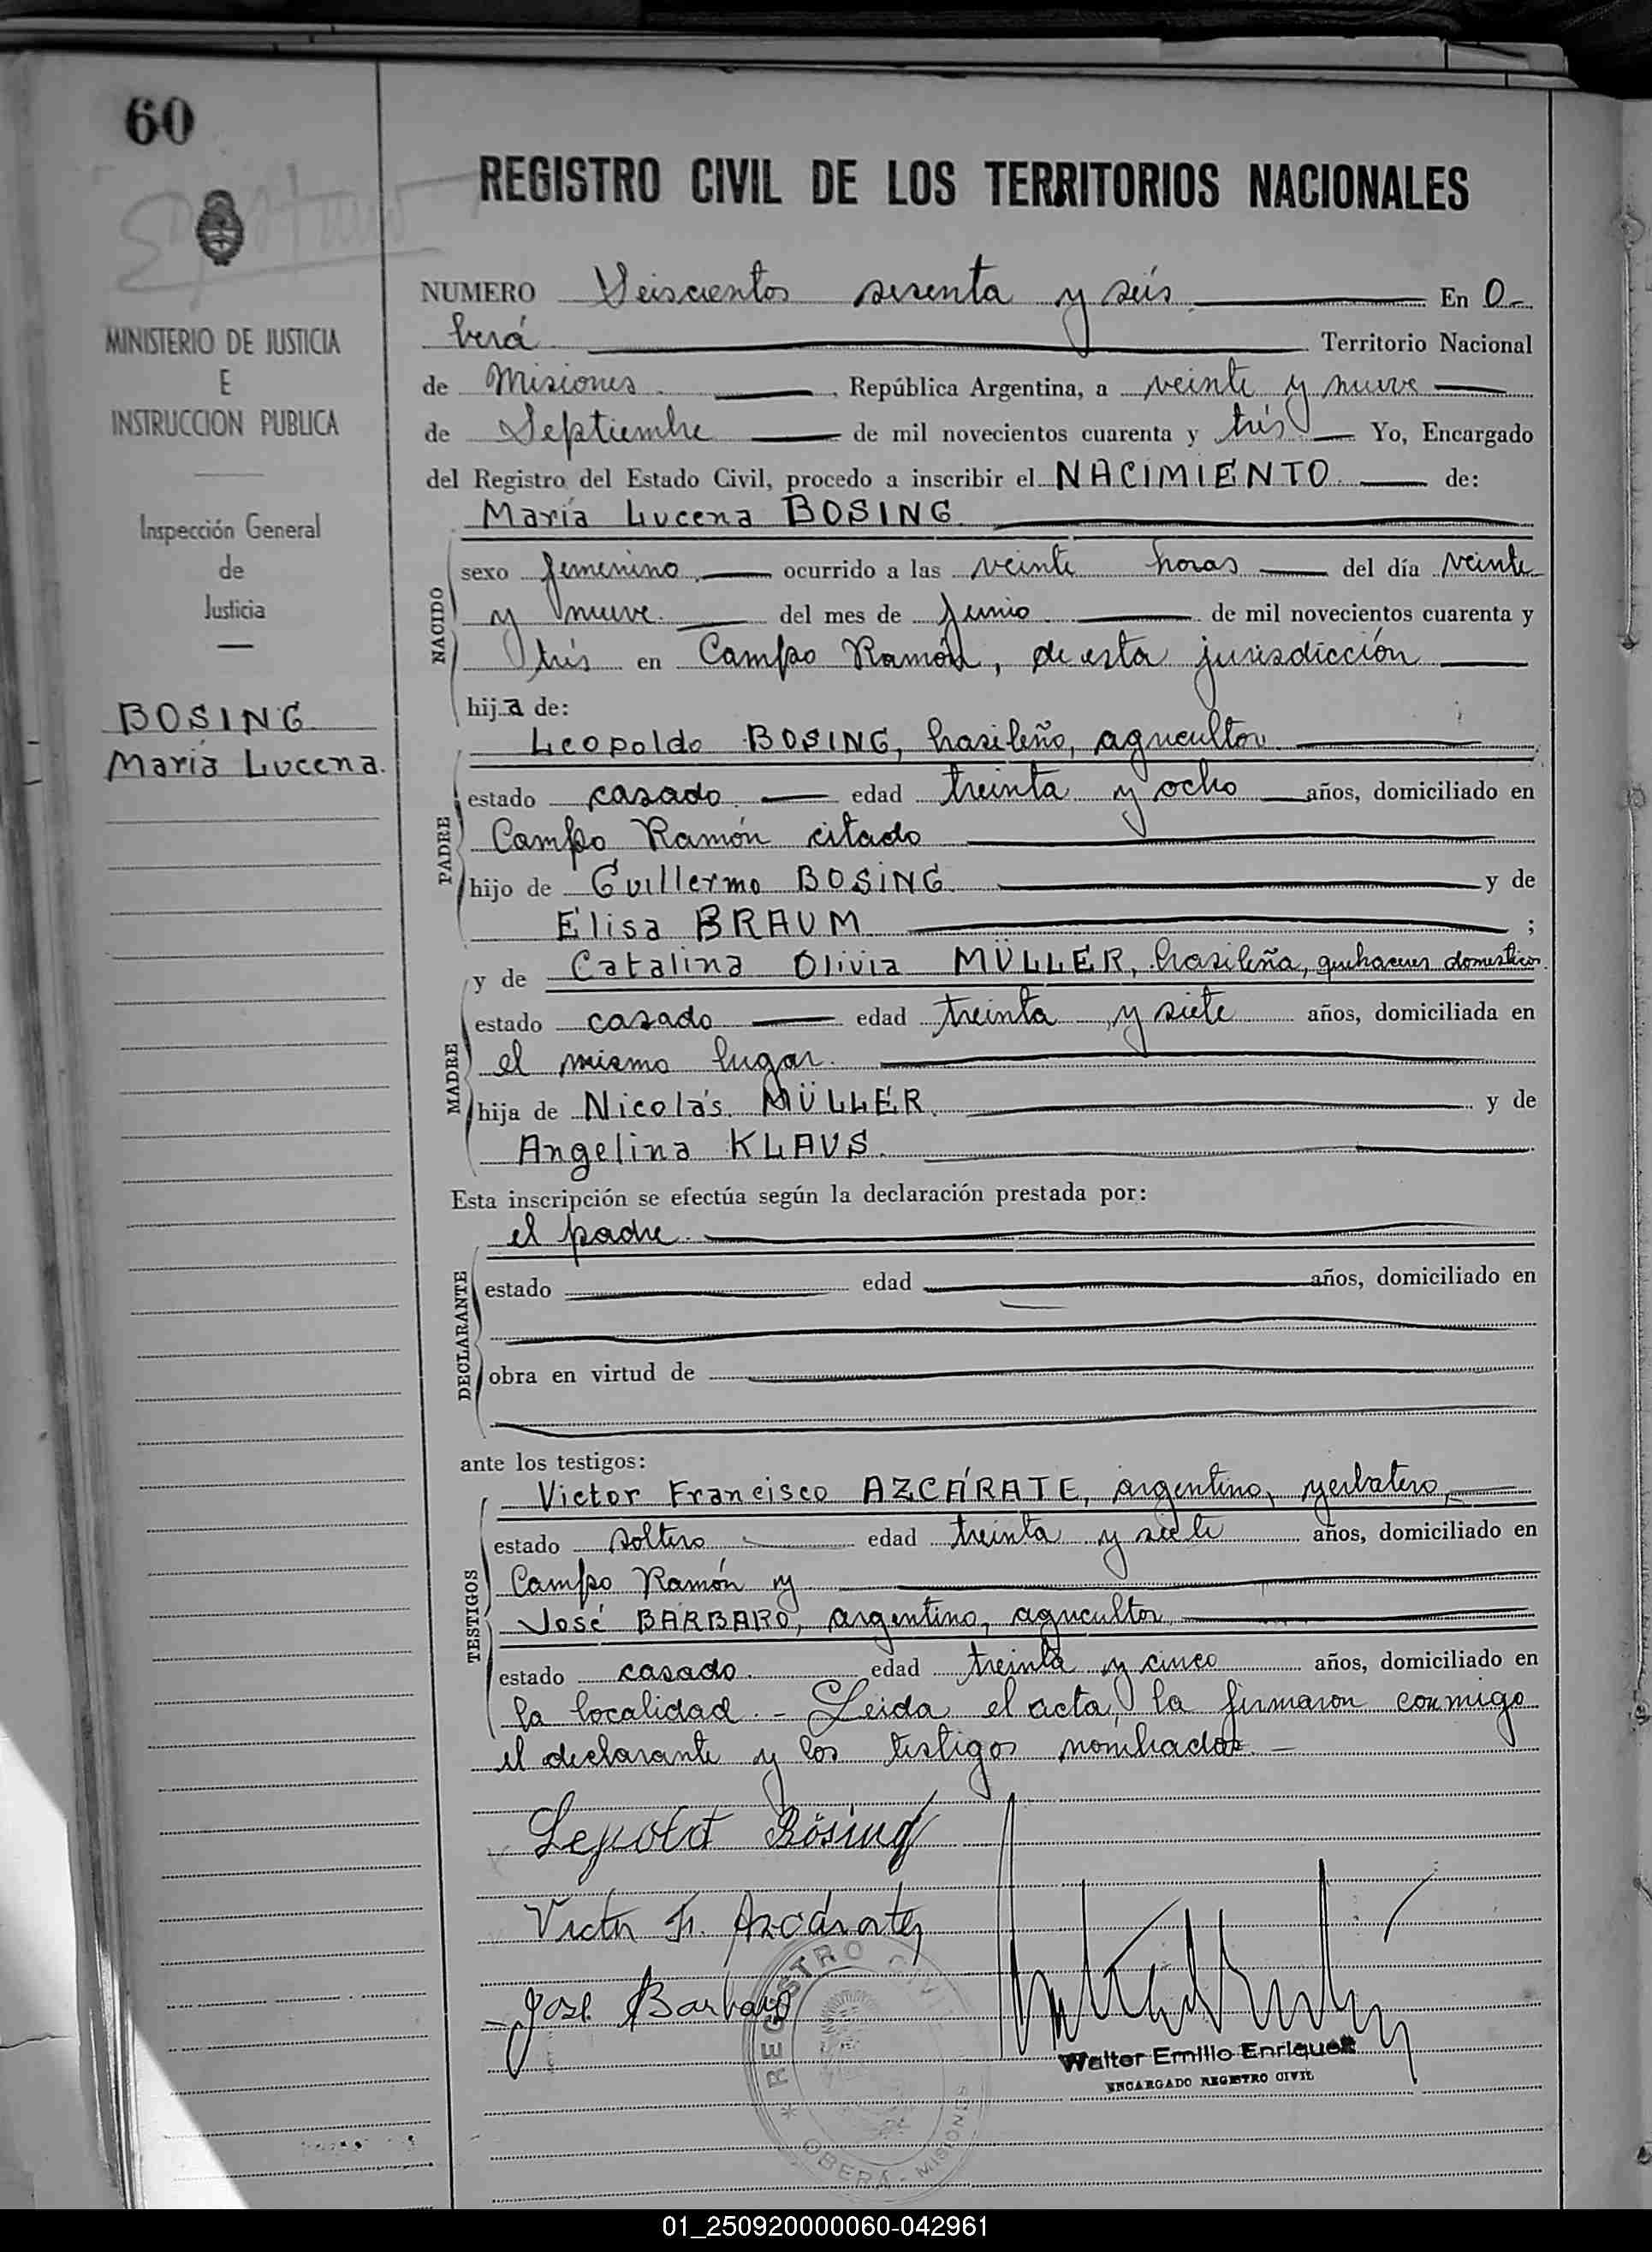 60
REGISTRO CIVIL DE LOS TERRITORIOS NACIONALES
NUMERO Seiscientos sesenta y seis En O-
berá Territorio Nacional
de Misiones República Argentina, a veinte y nueve
de Septiembre de mil novecientos cuarenta y trés Yo, Encargado
del Registro del Estado Civil, procedo a inscribir el NACIMIENTO de:
María Lucena BOSING
MINISTERIO DE JUSTICIA
E
INSTRUCCION PUBLICA
Inspección General
de
Justicia
BOSING
María Lucena.
NACIDO
sexo femenino ocurrido a las veinte horas del día veinte
y nueve del mes de Junio de mil novecientos cuarenta y
trés en Campo Ramón, de esta jurisdicción
hija de:
Leopoldo BOSING, brasileño, agricultor
PADRE
estado casado edad treinta y ocho años, domiciliado en
Campo Ramón citado
hijo de Guillermo BOSING y de
Elisa BRAUM ;
y de Catalina Olivia MÜLLER, brasileña, quehaceres domesticos
MADRE
estado casado edad treinta y siete años, domiciliada en
el mismo lugar.
hija de Nicolás MÜLLER y de
Angelina KLAUS.
Esta inscripción se efectúa según la declaración prestada por:
el padre
DECLARANTE
estado edad años, domiciliado en
obra en virtud de
ante los testigos:
Victor Francisco AZCÁRATE, argentino, yerbatero,
TESTIGOS
estado soltero edad treinta y siete años, domiciliado en
Campo Ramón y
José BARBARO, argentino, agricultor
estado casado edad treinta y cinco años, domiciliado en
la localidad.- Leida el acta, la firmaron conmigo
el declarante y los testigos nombrados.-
Lepold Bösing
Victor F. Azcárate
José Barbaro
REGISTRO CIVIL
* OBERA - MISIONES
Walter Emilio Enriquez
ENCARGADO REGISTRO CIVIL
01_250920000060-042961